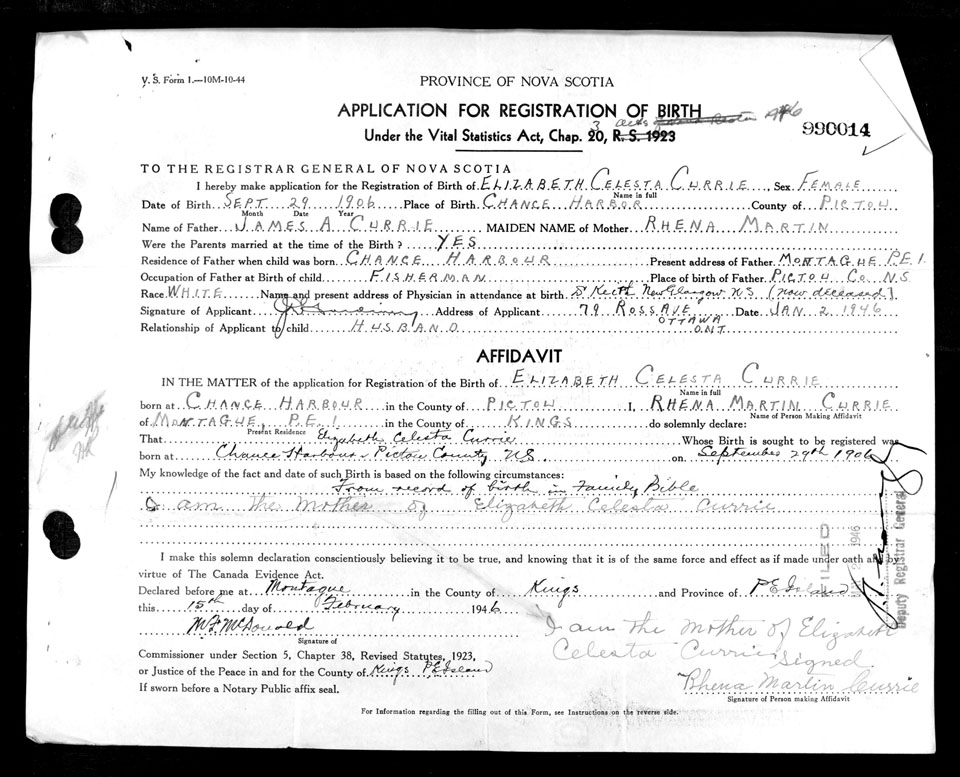 V. S. Form 1.—10M-10-44
PROVINCE OF NOVA SCOTIA
APPLICATION FOR REGISTRATION OF BIRTH
3 acts
Under the Vital Statistics Act, Chap. 20, R. S. 1923
990014
TO THE REGISTRAR GENERAL OF NOVA SCOTIA
I hereby make application for the Registration of Birth of ELIZABETH CELESTA CURRIE, Sex FEMALE
Name in full
Date of Birth SEPT 29 1906 Place of Birth CHANCE HARBOR County of PICTOU
Month Date Year
Name of Father JAMES A CURRIE MAIDEN NAME of Mother RHENA MARTIN
Were the Parents married at the time of the Birth? YES
Residence of Father when child was born CHANCE HARBOUR Present address of Father MONTAGUE P.E.I.
Occupation of Father at Birth of child FISHERMAN Place of birth of Father PICTOU CO. N.S
Race WHITE Name and present address of Physician in attendance at birth Dr Keith New Glasgow N.S (now deceased)
Signature of Applicant Address of Applicant 79 ROSS AVE Date JAN 2 1946
OTTAWA
Relationship of Applicant to child HUSBAND ONT.
AFFIDAVIT
IN THE MATTER of the application for Registration of the Birth of ELIZABETH CELESTA CURRIE
Name in full
born at CHANCE HARBOUR in the County of PICTOU I, RHENA MARTIN CURRIE
Name of Person Making Affidavit
of MONTAGUE, P.E.I in the County of KINGS do solemnly declare:
Present Residence
That Elizabeth Celesta Currie Whose Birth is sought to be registered was
born at Chance Harbour Pictou County N.S on September 29th 1906
My knowledge of the fact and date of such Birth is based on the following circumstances:
From record of birth in Family Bible
I am the mother of Elizabeth Celesta Currie
I make this solemn declaration conscientiously believing it to be true, and knowing that it is of the same force and effect as if made under oath and by
virtue of The Canada Evidence Act.
Declared before me at Montague in the County of Kings and Province of P E Island
this 15th day of February 1946
M F McDonald
Signature of
Commissioner under Section 5, Chapter 38, Revised Statutes, 1923,
or Justice of the Peace in and for the County of Kings P E Island
If sworn before a Notary Public affix seal.
I am the mother of Elizabeth
Celesta Currie
Signed
Rhena Martin Currie
Signature of Person making Affidavit
For Information regarding the filling out of this Form, see Instructions on the reverse side.
1946
Deputy Registrar General